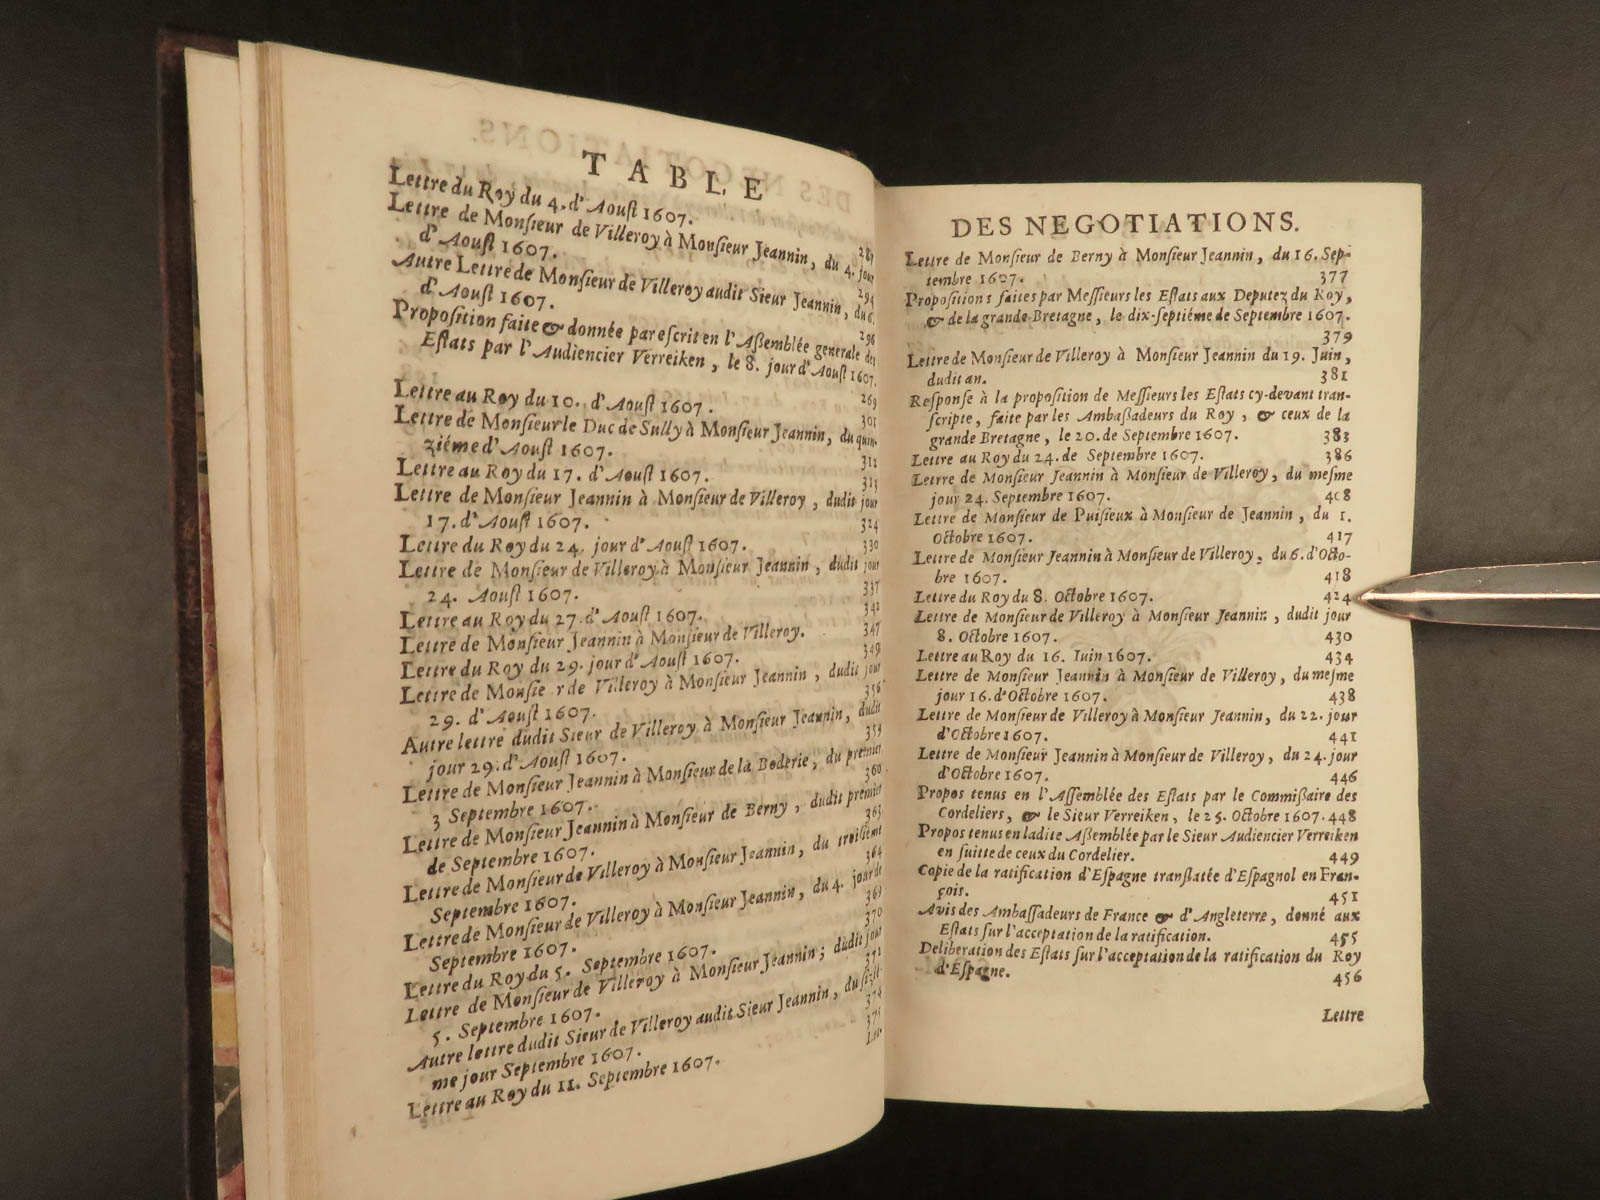 TABLE
Lettre du Roy du 4. d'Aouſt 1607.
287
Lettre de Monſieur de Villeroy à Monſieur Jeannin, du 4. jour
d'Aouſt 1607.
294
Autre Lettre de Monſieur de Villeroy audit Sieur Jeannin, du 6.
d'Aouſt 1607.
296
Propoſition faite & donnée par eſcrit en l'Aßemblée generale des
Eſtats par l'Audiencier Verreiken, le 8. jour d'Aouſt 1607.
269
Lettre au Roy du 10. d'Aouſt 1607.
301
Lettre de Monſieur le Duc de Sully à Monſieur Jeannin, du quin-
ziéme d'Aouſt 1607.
312
Lettre au Roy du 17. d'Aouſt 1607.
313
Lettre de Monſieur Jeannin à Monſieur de Villeroy, dudit jour
17. d'Aouſt 1607.
324
Lettre du Roy du 24. jour d'Aouſt 1607.
330
Lettre de Monſieur de Villeroy à Monſieur Jeannin, dudit jour
24. Aouſt 1607.
337
Lettre au Roy du 27. d'Aouſt 1607.
342
Lettre de Monſieur Jeannin à Monſieur de Villeroy.
347
Lettre du Roy du 29. jour d'Aouſt 1607.
349
Lettre de Monſie r de Villeroy à Monſieur Jeannin, dudit jour
29. d'Aouſt 1607.
356
Autre lettre dudit Sieur de Villeroy à Monſieur Jeannin, dudit
jour 29. d'Aouſt 1607.
359
Lettre de Monſieur Jeannin à Monſieur de la Boderie, du premier
3 Septembre 1607.
360
Lettre de Monſieur Jeannin à Monſieur de Berny, dudit premier
de Septembre 1607.
363
Lettre de Monſieur de Villeroy à Monſieur Jeannin, du troiſiéme
Septembre 1607.
364
Lettre de Monſieur de Villeroy à Monſieur Jeannin, du 4. jour de
Septembre 1607.
369
Lettre du Roy du 5. Septembre 1607.
370
Lettre de Monſieur de Villeroy à Monſieur Jeannin; dudit jour
5. Septembre 1607.
372
Autre lettre dudit Sieur de Villeroy audit Sieur Jeannin,
me jour Septembre 1607.
374
Lettre au Roy du 11. Septembre 1607.
375
DES NEGOTIATIONS.
Lettre de Monſieur de Berny à Monſieur Jeannin, du 16. Sep-
tembre 1607. 377
Propoſitions faites par Meſſieurs les Eſtats aux Deputez du Roy,
& de la grande-Bretagne, le dix-ſeptiéme de Septembre 1607.
379
Lettre de Monſieur de Villeroy à Monſieur Jeannin du 19. Juin,
dudit an. 381
Reſponſe à la propoſition de Meſſieurs les Eſtats cy-devant tran-
ſcripte, faite par les Ambaßadeurs du Roy, & ceux de la
grande Bretagne, le 20. de Septembre 1607. 383
Lettre au Roy du 24. de Septembre 1607. 386
Letrre de Monſieur Jeannin à Monſieur de Villeroy, du meſme
jour 24. Septembre 1607. 408
Lettre de Monſieur de Puiſieux à Monſieur de Jeannin, du 1.
Octobre 1607. 417
Lettre de Monſieur Jeannin à Monſieur de Villeroy, du 6. d'Octo-
bre 1607. 418
Lettre du Roy du 8. Octobre 1607. 424
Lettre de Monſieur de Villeroy à Monſieur Jeannin, dudit jour
8. Octobre 1607. 430
Lettre au Roy du 16. Iuin 1607. 434
Lettre de Monſieur Jeannin à Monſieur de Villeroy, du meſme
jour 16. d'Octobre 1607. 438
Lettre de Monſieur de Villeroy à Monſieur Jeannin, du 22. jour
d'Octobre 1607. 441
Lettre de Monſieur Jeannin à Monſieur de Villeroy, du 24. jour
d'Octobre 1607. 446
Propos tenus en l'Aſſemblée des Eſtats par le Commißaire des
Cordeliers, & le Sieur Verreiken, le 25. Octobre 1607. 448
Propos tenus en ladite Aßemblée par le Sieur Audiencier Verreiken
en ſuitte de ceux du Cordelier. 449
Copie de la ratification d'Eſpagne tranſlatée d'Eſpagnol en Fran-
çois. 451
Avis des Ambaſſadeurs de France & d'Angleterre, donné aux
Eſtats ſur l'acceptation de la ratification. 455
Deliberation des Eſtats ſur l'acceptation de la ratification du Roy
d'Eſpagne. 456
Lettre